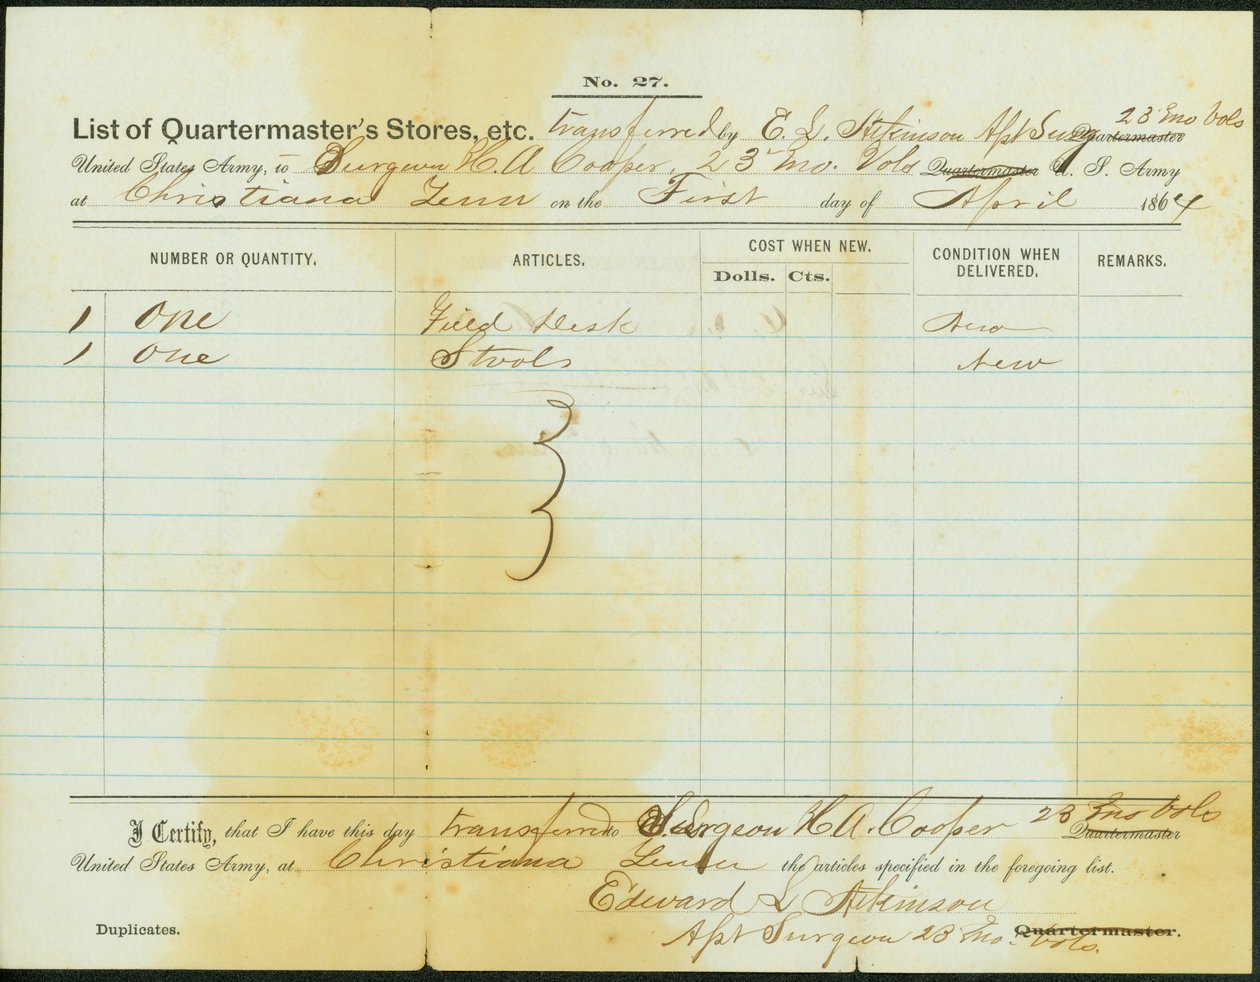 No. 27.
List of Quartermaster's Stores, etc. transferred by E. L. Atkinson Asst Surg Quartermaster 23 Mo Vols
United States Army, to Surgeon H. A Cooper, 23 Mo. Vols Quartermaster U. S. Army
at Christiana Tenn on the First day of April 1864
NUMBER OR QUANTITY. ARTICLES. COST WHEN NEW. CONDITION WHEN DELIVERED. REMARKS.
Dolls. Cts.
1 One Field Desk New
1 One Stools New
I Certify, that I have this day transferred to Surgeon H A. Cooper 23 Mo Vols Quartermaster
United States Army, at Christiana Tenn the articles specified in the foregoing list.
Edward L Atkinson
Duplicates. Asst Surgeon 23 Mo. Vols. Quartermaster.